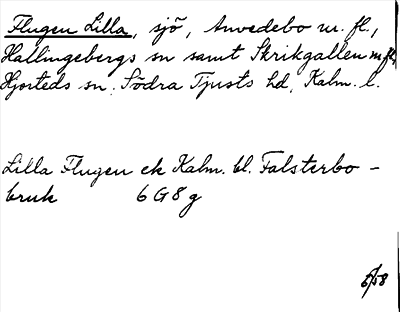 Flugen Lilla, sjö, Anvedebo m. fl.,
Hallingebergs sn samt Skrikgallen m.fl.
Hjorteds sn, Södra Tjusts hd, Kalm. l.
Lilla Flugen ek Kalm. bl. Falsterbo -
bruk 6 G 8 g
5/58